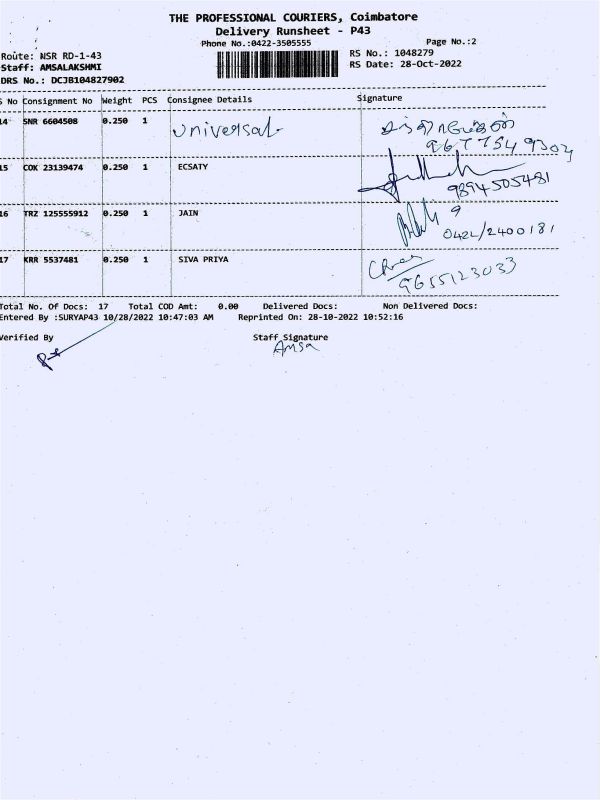 THE PROFESSIONAL COURIERS, Coimbatore
Delivery Runsheet - P43
Phone No.:0422-3505555
Page No.:2
Route: NSR RD-1-43
RS No.: 1048279
Staff: AMSALAKSHMI
RS Date: 28-Oct-2022
DRS No.: DCJB104827902
S No Consignment No Weight PCS Consignee Details Signature
14 SNR 6604508 0.250 1 universal
967754 9304
15 COK 23139474 0.250 1 ECSATY
9894505481
16 TRZ 125555912 0.250 1 JAIN
0422/2400181
17 KRR 5537481 0.250 1 SIVA PRIYA
9655123033
Total No. Of Docs: 17 Total COD Amt: 0.00 Delivered Docs: Non Delivered Docs:
Entered By :SURYAP43 10/28/2022 10:47:03 AM Reprinted On: 28-10-2022 10:52:16
Verified By Staff Signature
Amsa